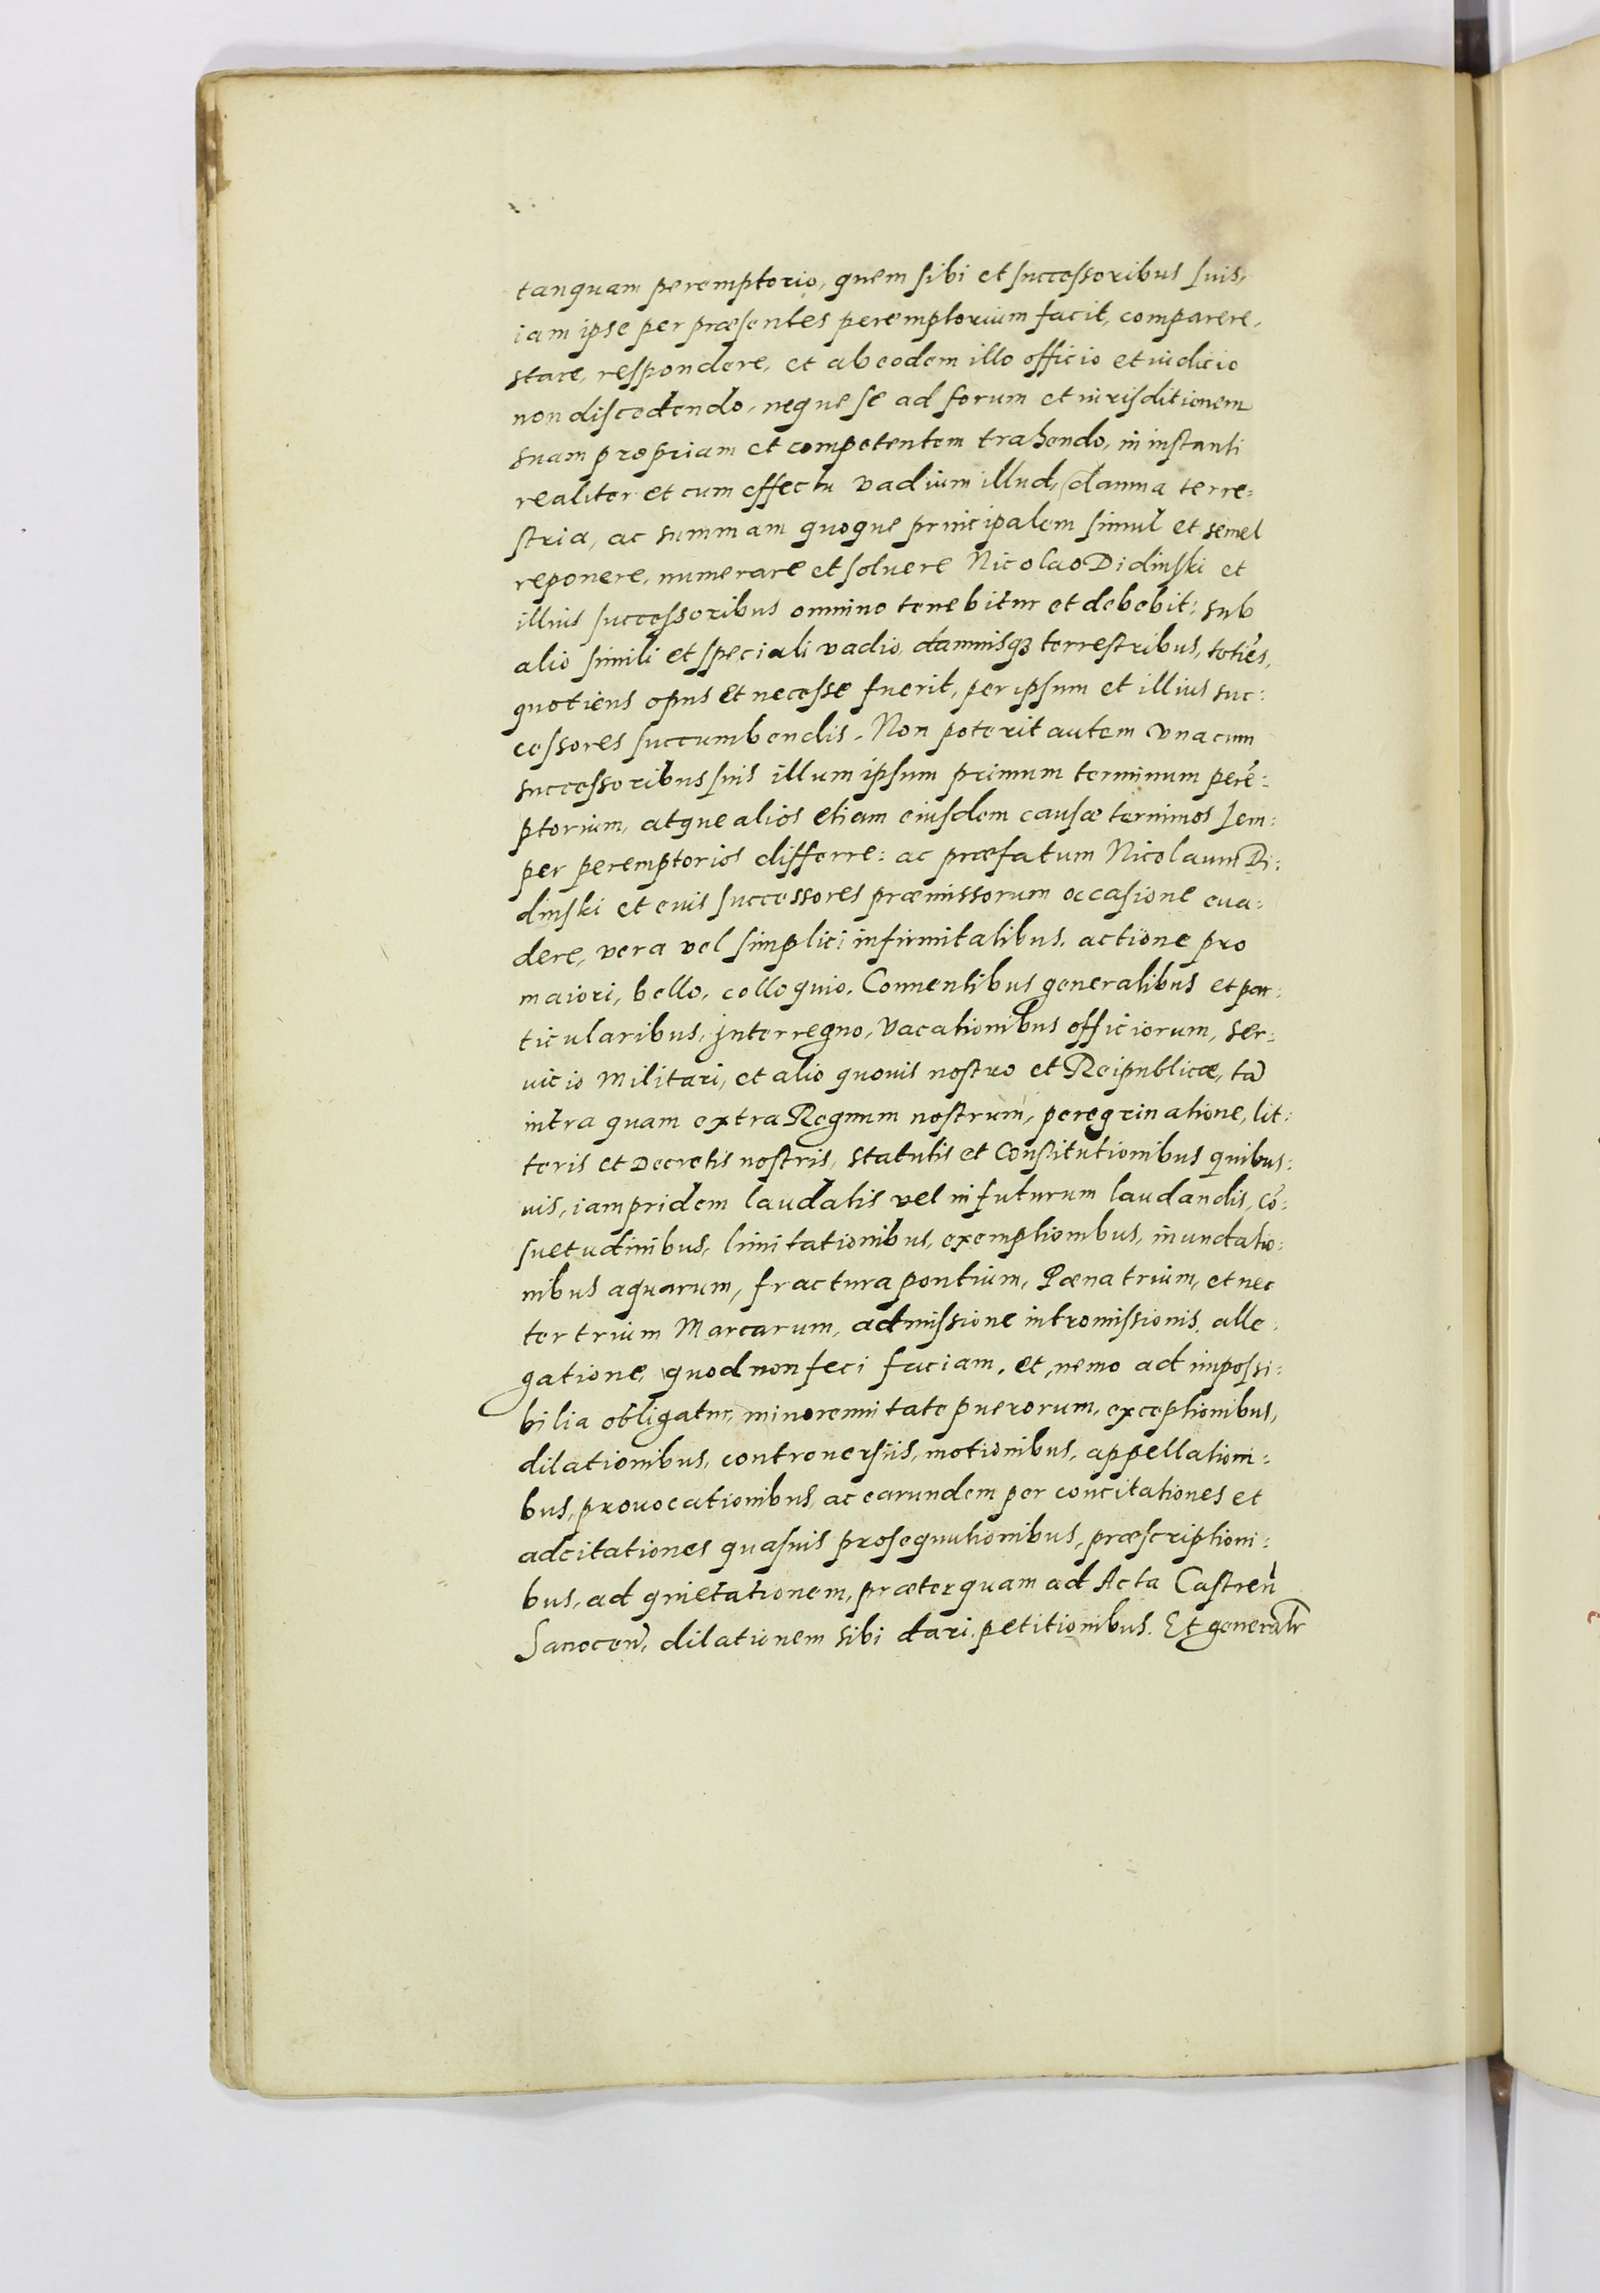 tanquam peremptorio, quem sibi et successoribus suis,
iam ipse per præsentes peremptorium facit, comparere,
stare, respondere, et ab eodem illo officio et iudicio
non discedendo, neque se ad forum et iurisditionem
suam propriam et competentem trahendo, in instanti
realiter et cum effectu vadium illud, damna terre:
stria, ac summam quoque principalem simul et semel
reponere, numerare et soluere Nicolao Didinski et
illius successoribus omnino tenebitur et debebit: sub
alio simili et speciali vadio, damnisqꝫ terrestribus, totiẽs,
quotiens opus et necesse fuerit, per ipsum et illius suc:
cessores succumbendis. Non poterit autem vna cum
successoribus suis illum ipsum primum terminum perẽ:
ptorium, atque alios etiam eiusdem causæ terminos sem:
per peremptorios differre: ac præfatum Nicolaum Di:
dinski et euis successores præmissorum occasione eua:
dere, vera vel simplici infirmitatibus, actione pro
maiori, bello, colloquio, Conuentibus generalibus et par:
ticularibus, Interregno, vacationibus officiorum, ser:
uicio militari, et alio quouis nostro et Reipublicæ, tã
intra quam extra Regnum nostrum, peregrinatione, lit:
teris et Decretis nostris, statutis et Constitutionibus quibus:
uis, iampridem laudatis vel in futurum laudandis, cõ:
suetudinibus, limitationibus, exemptionibus, inundatio:
nibus aquarum, fractura pontium, Pæna trium, et nec
ter trium Marcarum, admissione intromissionis, alle:
gatione, quod non feci faciam, et, nemo ad impossi:
bilia obligatur, minorennitate puerorum, exceptionibus,
dilationibus, controuersiis, motionibus, appellationi:
bus, prouocationibus, ac earundem per concitationes et
adcitationes quasuis prosequutionibus, præscriptioni:
bus, ad quietationem, præterquam ad Acta Castreñ
Sanoceñ, dilationem sibi dari petitionibus. Et generalr̃